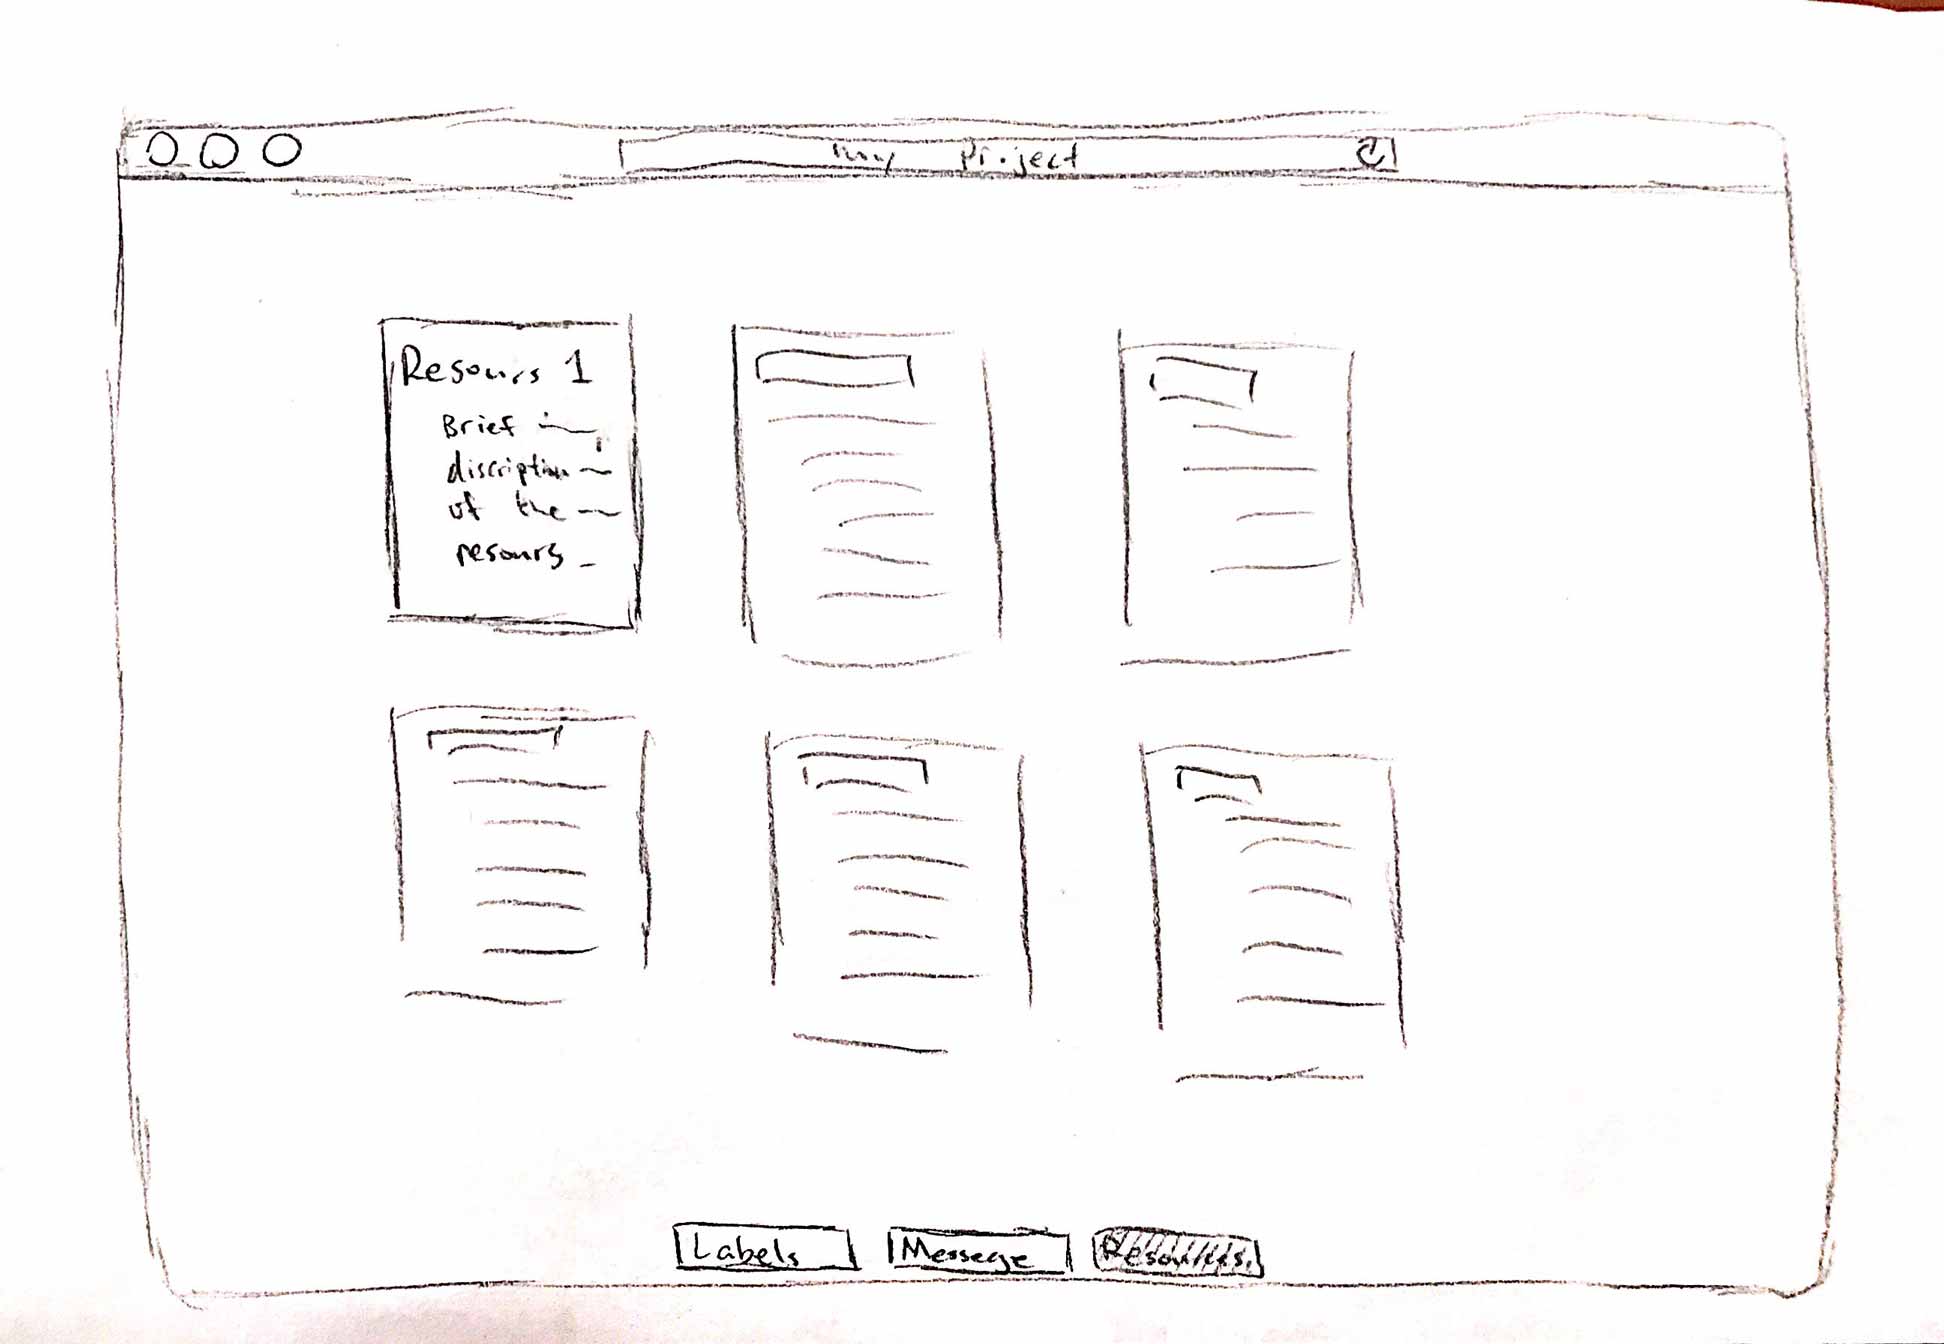 my Project
Resours 1
Brief
discription
of the
resours
Labels
Messege
Resources